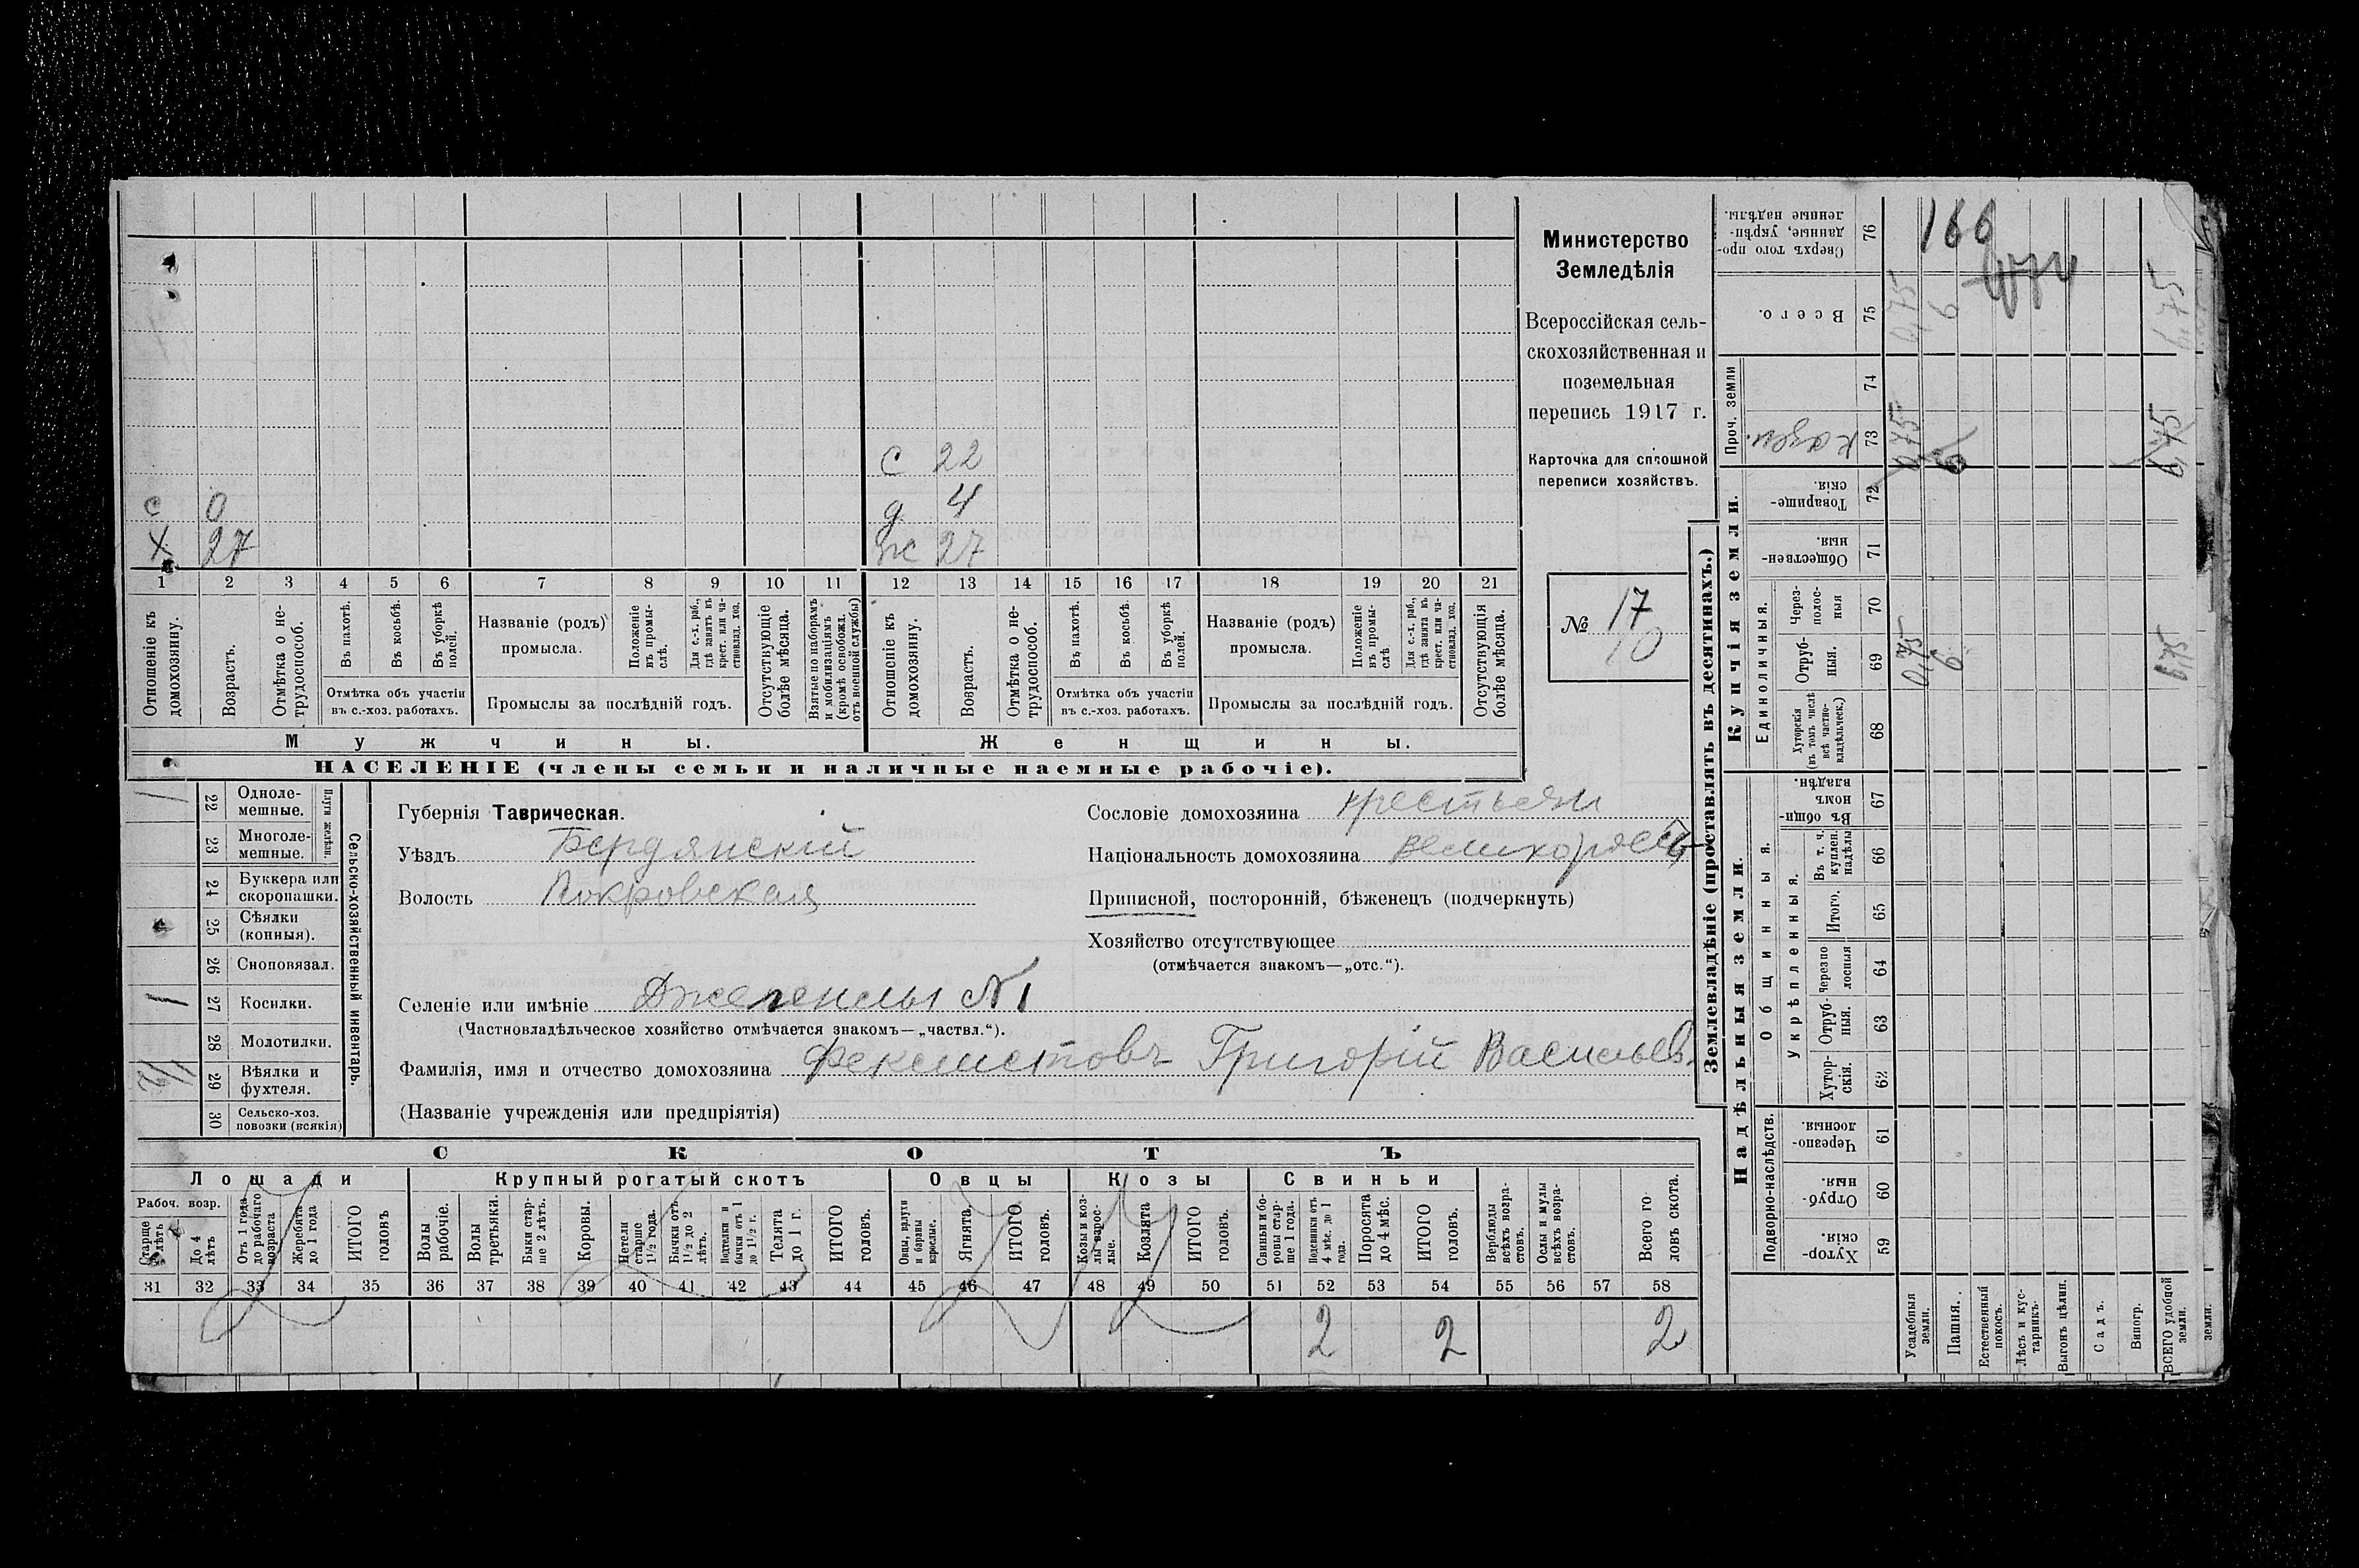 Министерство
Земледѣлія
Всероссійская сель-
скохозяйственная и
поземельная
перепись 1917 г.
Карточка для сплошной
переписи хозяйствъ.
№ 17
10
с 22
с 0 д 4
х 27 ж 27
1 2 3 4 5 6 7 8 9 10 11 12 13 14 15 16 17 18 19 20 21
Отношеніе къ домохозяину.
Возрастъ.
Отмѣтка о не-трудоспособ.
Въ пахотѣ.
Въ косьбѣ.
Въ уборкѣ полей.
Отмѣтка объ участіи
въ с.-хоз. работахъ.
Названіе (родъ)
промысла.
Положеніе въ промы-слѣ.
Для с.-х. раб., гдѣ занятъ въ крест. или ча-стновлад. хоз.
Промыслы за послѣдній годъ.
Отсутствующіе болѣе мѣсяца.
Взятые по наборамъ и мобилизаціямъ (кромѣ освобожд. отъ военной службы)
Отношеніе къ домохозяину.
Возрастъ.
Отмѣтка о не-трудоспособ.
Въ пахотѣ.
Въ косьбѣ.
Въ уборкѣ полей.
Отмѣтка объ участіи
въ с.-хоз. работахъ.
Названіе (родъ)
промысла.
Положеніе въ промы-слѣ.
Для с.-х. раб., гдѣ занята въ крест. или ча-стновлад. хоз.
Промыслы за послѣдній годъ.
Отсутствующія болѣе мѣсяца.
Мужчины. Женщины.
НАСЕЛЕНІЕ (члены семьи и наличные наемные рабочіе).
Сельско-хозяйственный инвентарь.
Плуги желѣзн.
22 Одноле-
мешные.
23 Многоле-
мешные.
24 Буккера или
скоропашки.
25 Сѣялки
(конныя).
26 Сноповязал.
1 27 Косилки.
28 Молотилки.
1/2 29 Вѣялки и
фухтеля.
30 Сельско-хоз.
повозки (всякія)
Губернія Таврическая.
Уѣздъ Бердянскій
Волость Покровская
Сословіе домохозяина крестьян
Національность домохозяина великоросс
Приписной, посторонній, бѣженецъ (подчеркнуть)
Хозяйство отсутствующее
(отмѣчается знакомъ—„отс.“).
Селеніе или имѣніе №1
(Частновладѣльческое хозяйство отмѣчается знакомъ—„частвл.“).
Фамилія, имя и отчество домохозяина Феклистовъ Григорій Васильев.
(Названіе учрежденія или предпріятія)
СКОТЪ
Лошади Крупный рогатый скотъ Овцы Козы Свиньи
Рабоч. возр.
Старше 4 лѣтъ
До 4 лѣтъ
Отъ 1 года до рабочаго возраста
Жеребята до 1 года
ИТОГО головъ
Волы рабочіе.
Волы третьяки.
Быки стар-ше 2 лѣтъ.
Коровы.
Нетели старше 1 1/2 года.
Бычки отъ 1 1/2 до 2 лѣтъ.
Подтелки и бычки отъ 1 до 1 1/2 г.
Телята до 1 г.
ИТОГО головъ.
Овцы, валухи и бараны взрослые.
Ягнята.
ИТОГО головъ.
Козы и коз-лы взрос-лые.
Козлята
ИТОГО головъ.
Свиньи и бо-ровы стар-ше 1 года.
Подсвинки отъ 4 мѣс. до 1 года.
Поросята до 4 мѣс.
ИТОГО головъ.
Верблюды всѣхъ возра-стовъ.
Ослы и мулы всѣхъ возра-стовъ.
Всего го-ловъ скота.
31 32 33 34 35 36 37 38 39 40 41 42 43 44 45 46 47 48 49 50 51 52 53 54 55 56 57 58
2 2 2
Землевладѣніе (проставлять въ десятинахъ.)
Надѣльныя земли. Купчія земли.
Проч. земли
Подворно-наслѣдств.
Общинныя.
Укрѣпленныя.
Единоличныя.
Сверхъ того про-данные, укрѣп-ленные надѣлы. 76
Всего. 75
74
Казен. 73
Товарище-скія. 72
Обществен-ныя. 71
Через-полос-ныя 70
Отруб-ныя. 69
Хуторскія (въ томъ числѣ всѣ частно-владѣльческ.) 68
Въ общин-номъ владѣн. 67
Въ т. ч. куплен. надѣлы 66
Итого. 65
Черезпо-лосныя 64
Отруб-ныя. 63
Хутор-скія. 62
Черезпо-лосныя. 61
Отруб-ныя. 60
Хутор-скія. 59
166
0,75 6 6,75
0,75 6 6,75
0,75 6 6,75
Усадебныя земли.
Пашня.
Естественный покосъ.
Лѣсъ и кус-тарникъ.
Выгонъ цѣлин.
Садъ.
Виногр.
ВСЕГО удобной земли.
земли.